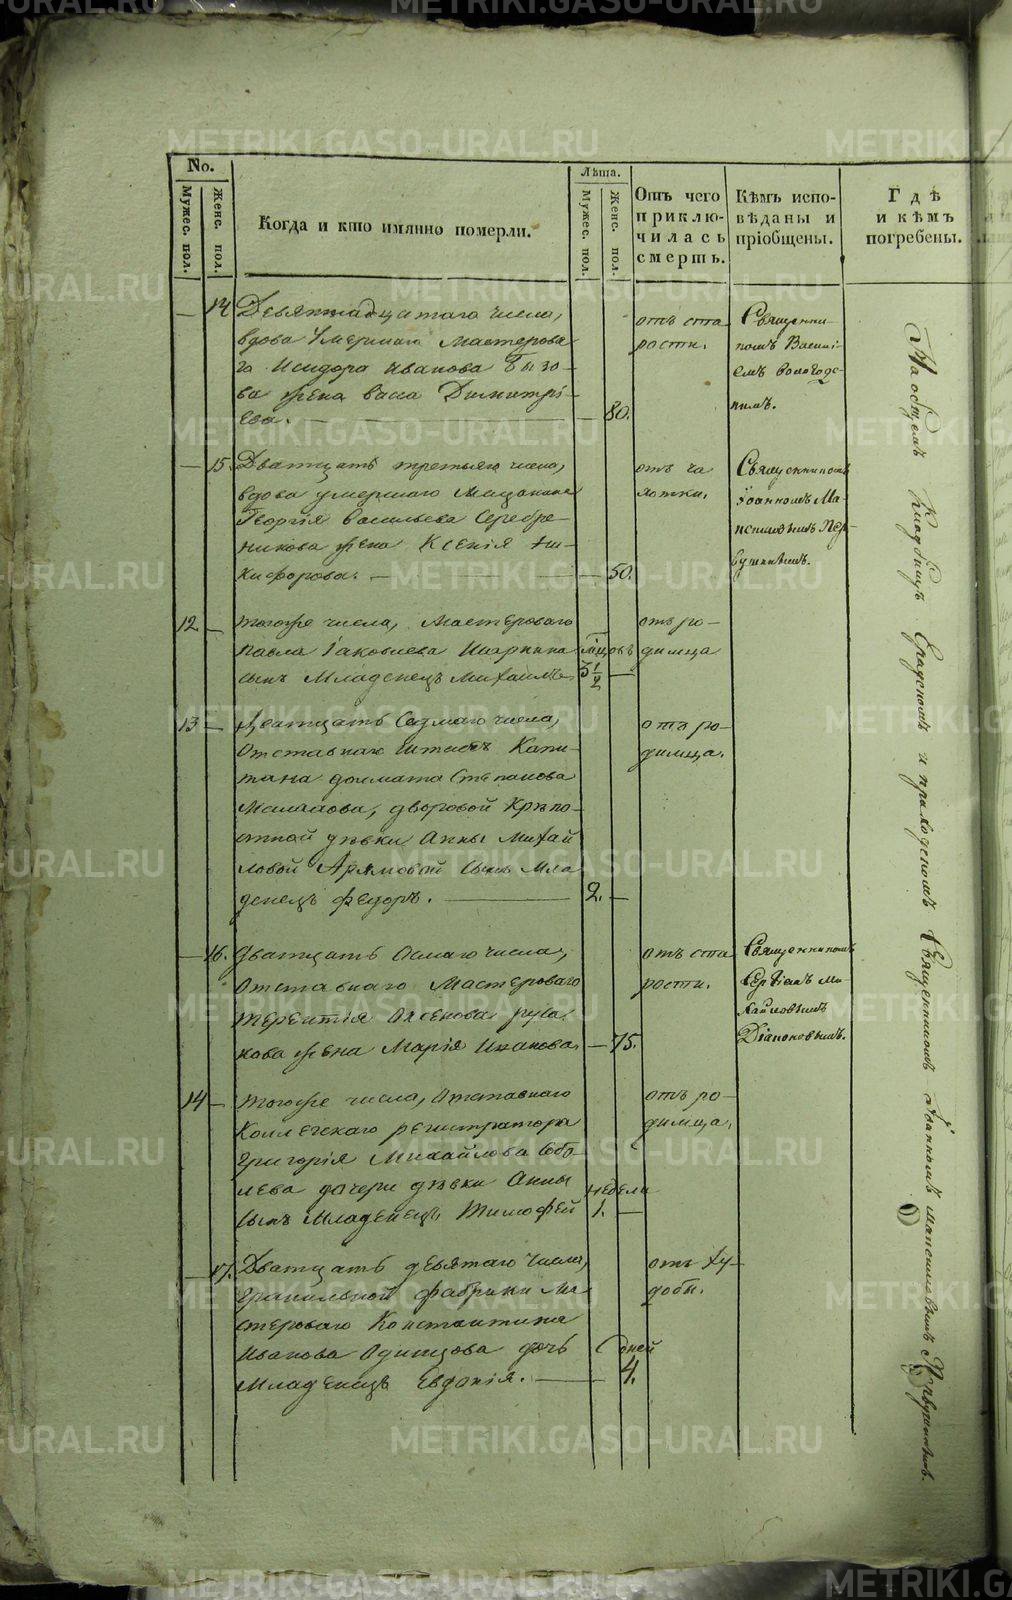 METRIKI.GASO-URAL.RU
No.
Мужес. пол.
Женс. пол.
Когда и кто имянно померли.
Лѣта.
Мужес. пол.
Женс. пол.
Отъ чего приклю-чилась смерть.
Кѣмъ испо-вѣданы и пріобщены.
Гдѣ и кѣмъ погребены.
— 14 Девятнадцатаго числа,
вдова умершаго мастерова
го Исидора Иванова Бызо-
ва жена Васса Димитрі-
ева. — 80.
отъ ста
рости.
Священни-
комъ Василі-
емъ Вологодс-
кимъ.
— 15. Дватцать третьяго числа,
вдова умершаго мещанина
Георгія Васильева Серебре-
никова жена Ксенія Ни-
кифорова. — 50.
отъ ча
хотки.
Священникомъ
Іоанномъ Ма-
ксимовымъ Пер-
вушинымъ.
12 — тогоже числа, мастероваго
Павла Іаковлева
сынъ младенецъ Михаилъ
мѣцовъ
3 1/2 —
отъ ро-
димца
13 — Дватцать седмаго числа,
отставнаго штабсъ капи-
тана Долмата Степанова
дворовой крѣпо-
стной дѣвки Анны Михай
ловой сынъ мла
денецъ Федоръ. — 2. —
отъ ро-
димца.
— 16. Дватцать осмаго числа,
отставнаго мастероваго
Терентія Аксенова Руса
кова жена Марія Иванова. — 75.
отъ ста
рости.
Священникомъ
Сергіемъ Ми
хайловымъ
Діаконовымъ.
14 — тогоже числа, отставнаго
коллежскаго регистратора
Григорія Михайлова Собо
лева дочери дѣвки Анны
сынъ младенецъ Тимофей
недели
1. —
отъ ро-
димца.
— 17. Дватцать девятаго числа,
гранильной фабрики ма
стероваго Константина
Иванова Одинцова дочь
младенецъ Евдокія. —
дней
4.
отъ ху-
добы.
На общемъ кладбищѣ градскомъ и приходскомъ Священникомъ Іоанномъ Максимовымъ Первушинымъ.